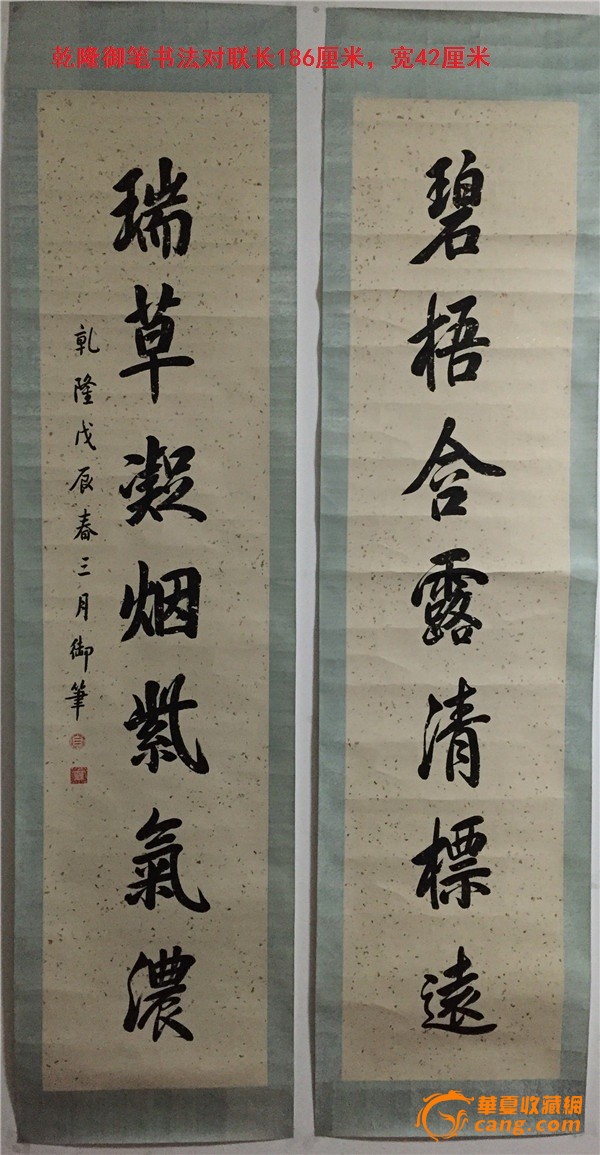 乾隆御笔书法对联长186厘米，宽42厘米
碧梧合露清標遠
瑞草凝烟紫氣濃
乾隆戊辰春三月御筆
華夏收藏網
cang.com